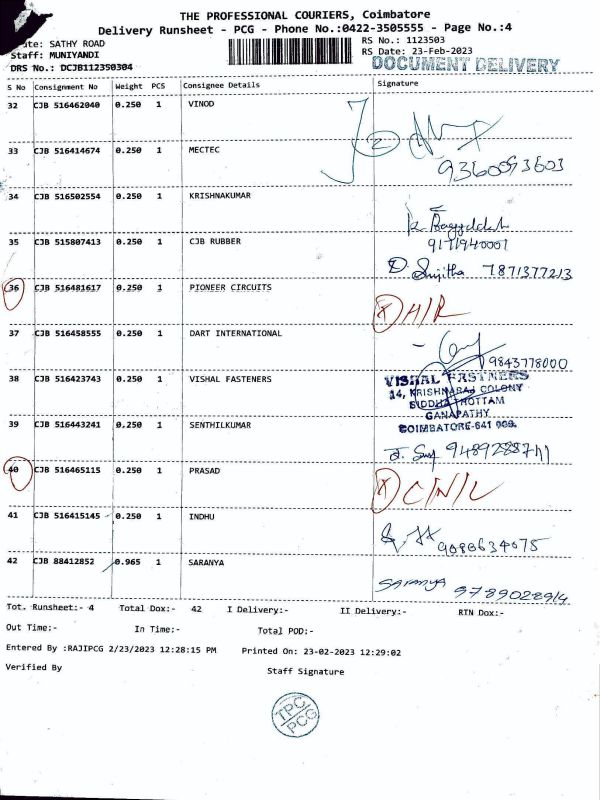 THE PROFESSIONAL COURIERS, Coimbatore
Delivery Runsheet - PCG - Phone No.:0422-3505555 - Page No.:4
SATHY ROAD
RS No.: 1123503
Staff: MUNIYANDI
RS Date: 23-Feb-2023
DRS No.: DCJB112350304
DOCUMENT DELIVERY
S No Consignment No Weight PCS Consignee Details Signature
32 CJB 516462040 0.250 1 VINOD
33 CJB 516414674 0.250 1 MECTEC
9360093603
34 CJB 516502554 0.250 1 KRISHNAKUMAR
35 CJB 515807413 0.250 1 CJB RUBBER
D. Sujitha 7871377213
36 CJB 516481617 0.250 1 PIONEER CIRCUITS
37 CJB 516458555 0.250 1 DART INTERNATIONAL
9843778000
38 CJB 516423743 0.250 1 VISHAL FASTENERS
VISHAL FASTNERS
14, KRISHNARAJ COLONY
SIDDHA THOTTAM
GANAPATHY
COIMBATORE-641 006.
39 CJB 516443241 0.250 1 SENTHILKUMAR
40 CJB 516465115 0.250 1 PRASAD
C/N/L
41 CJB 516415145 0.250 1 INDHU
9080634075
42 CJB 88412852 0.965 1 SARANYA
Saranya 9789028914
Tot. Runsheet:- 4 Total Dox:- 42 I Delivery:- II Delivery:- RTN Dox:-
Out Time:- In Time:- Total POD:-
Entered By :RAJIPCG 2/23/2023 12:28:15 PM Printed On: 23-02-2023 12:29:02
Verified By Staff Signature
TPC
PCG